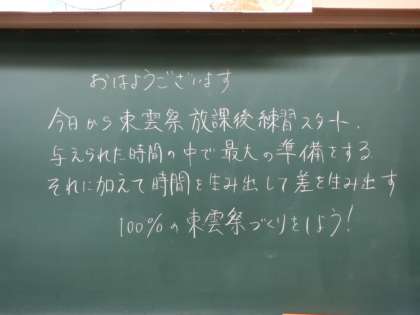 おはようございます
今日から東雲祭放課後練習スタート.
与えられた時間の中で最大の準備をする
それに加えて時間を生み出して差を生み出す
100%の東雲祭づくりをしよう!